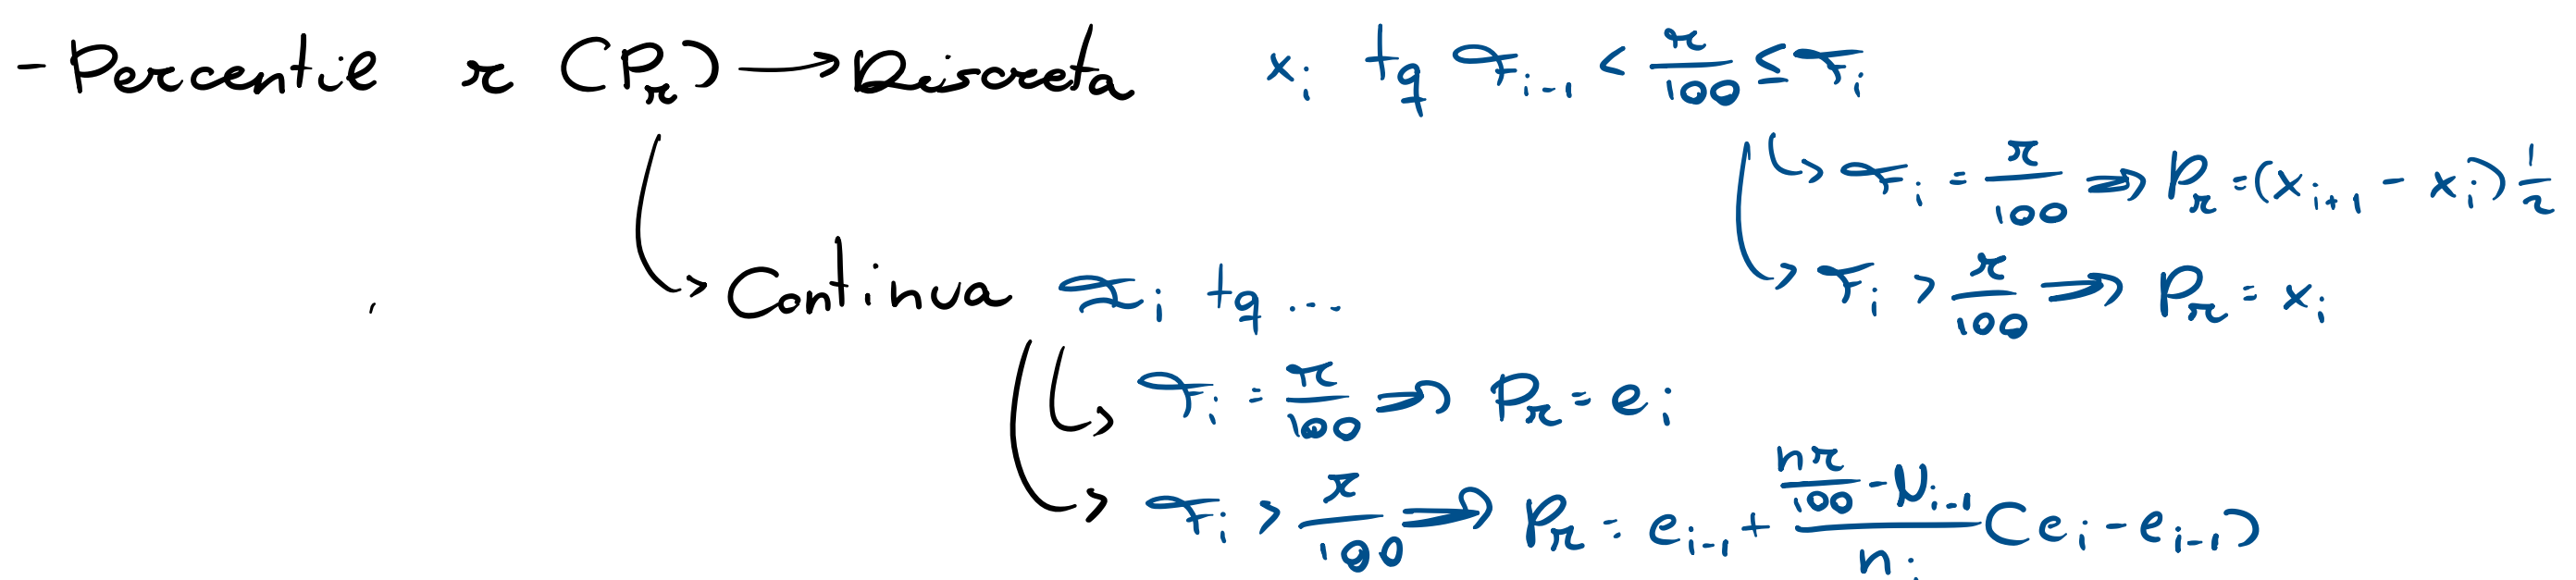 - Percentil r (P_r) → Discreta x_i tq F_{i-1} < r/100 ≤ F_i
↳ F_i = r/100 ⇒ P_r = (x_{i+1} - x_i) 1/2
↳ F_i > r/100 ⇒ P_r = x_i
↳ Continua I_i tq ...
↳ F_i = r/100 ⇒ P_r = e_i
↳ F_i > r/100 ⇒ P_r = e_{i-1} + (nr/100 - N_{i-1})/n_i (e_i - e_{i-1})